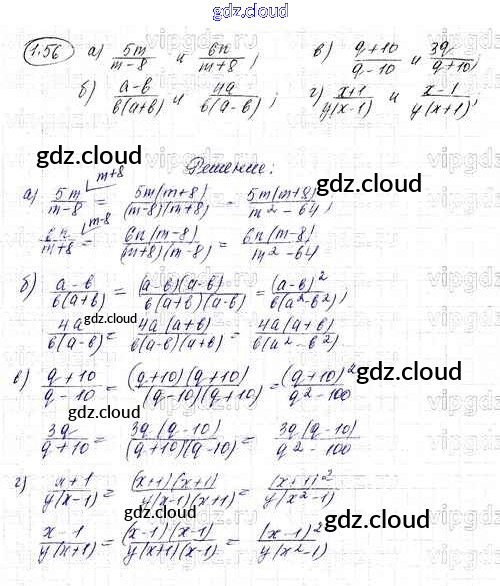 gdz.cloud
1.56 а) 5m/(m-8) и 6n/(m+8); в) (q+10)/(q-10) и 3q/(q+10);
б) (a-b)/(b(a+b)) и 4a/(b(a-b)); г) (x+1)/(y(x-1)) и (x-1)/(y(x+1));
gdz.cloud
Решение:
gdz.cloud
а) 5m/(m-8) ⌊m+8 = 5m(m+8)/((m-8)(m+8)) = 5m(m+8)/(m²-64);
6n/(m+8) ⌊m-8 = 6n(m-8)/((m+8)(m-8)) = 6n(m-8)/(m²-64)
gdz.cloud
б) (a-b)/(b(a+b)) = (a-b)(a-b)/(b(a+b)(a-b)) = (a-b)²/(b(a²-b²));
4a/(b(a-b)) = 4a(a+b)/(b(a-b)(a+b)) = 4a(a+b)/(b(a²-b²))
gdz.cloud
gdz.cloud
в) (q+10)/(q-10) = (q+10)(q+10)/((q-10)(q+10)) = (q+10)²/(q²-100)
gdz.cloud
gdz.cloud
3q/(q+10) = 3q(q-10)/((q+10)(q-10)) = 3q(q-10)/(q²-100)
г) (x+1)/(y(x-1)) = (x+1)(x+1)/(y(x-1)(x+1)) = (x+1)²/(y(x²-1))
gdz.cloud
(x-1)/(y(x+1)) = (x-1)(x-1)/(y(x+1)(x-1)) = (x-1)²/(y(x²-1))
gdz.cloud
gdz.cloud